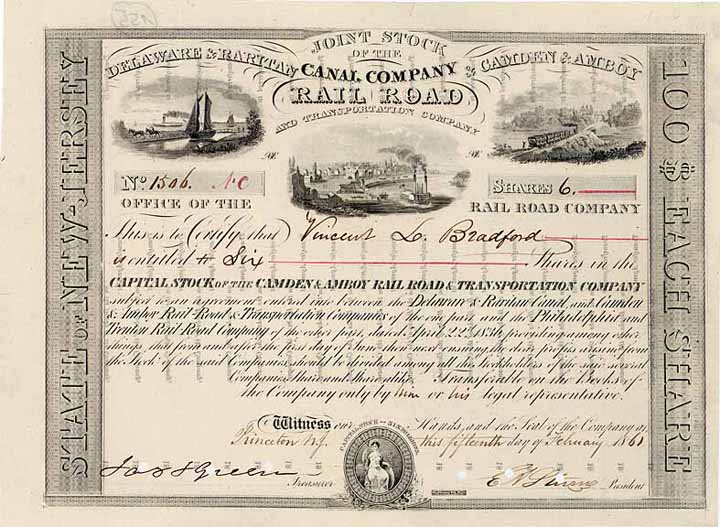 155
JOINT STOCK
OF THE
DELAWARE & RARITAN CANAL COMPANY & CAMDEN & AMBOY
RAIL ROAD
AND TRANSPORTATION COMPANY
STATE OF NEW-JERSEY
100 $ EACH SHARE
No. 1506. NC
SHARES 6.
OFFICE OF THE RAIL ROAD COMPANY
This is to Certify that Vincent L. Bradford
is entitled to Six Shares in the
CAPITAL STOCK OF THE CAMDEN & AMBOY RAIL ROAD & TRANSPORTATION COMPANY
subject to an agreement entered into between the Delaware & Raritan Canal, and Camden
& Amboy Rail-Road & Transportation Companies of the one part, and the Philadelphia and
Trenton Rail Road Company of the other part, dated April 22d 1836 providing among other
things that from and after the first day of June then next ensuing the clear profits arising from
the Stock of the said Companies, should be divided among all the Stockholders of the said several
Companies Share and Share alike. Transferable on the Books of
the Company only by him or his legal representative.
Witness our Hands, and the Seal of the Company at
Princeton N.J. this fifteenth day of February 1861
CAPITAL STOCK
Treasurer
President